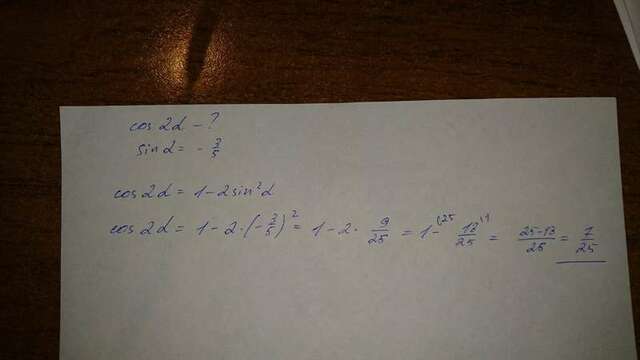 cos 2α - ?
sin α = - 3/5
cos 2α = 1 - 2 sin² α
cos 2α = 1 - 2 · (- 3/5)² = 1 - 2 · 9/25 = 1\25 - 18/25\1 = 25-18/25 = 7/25